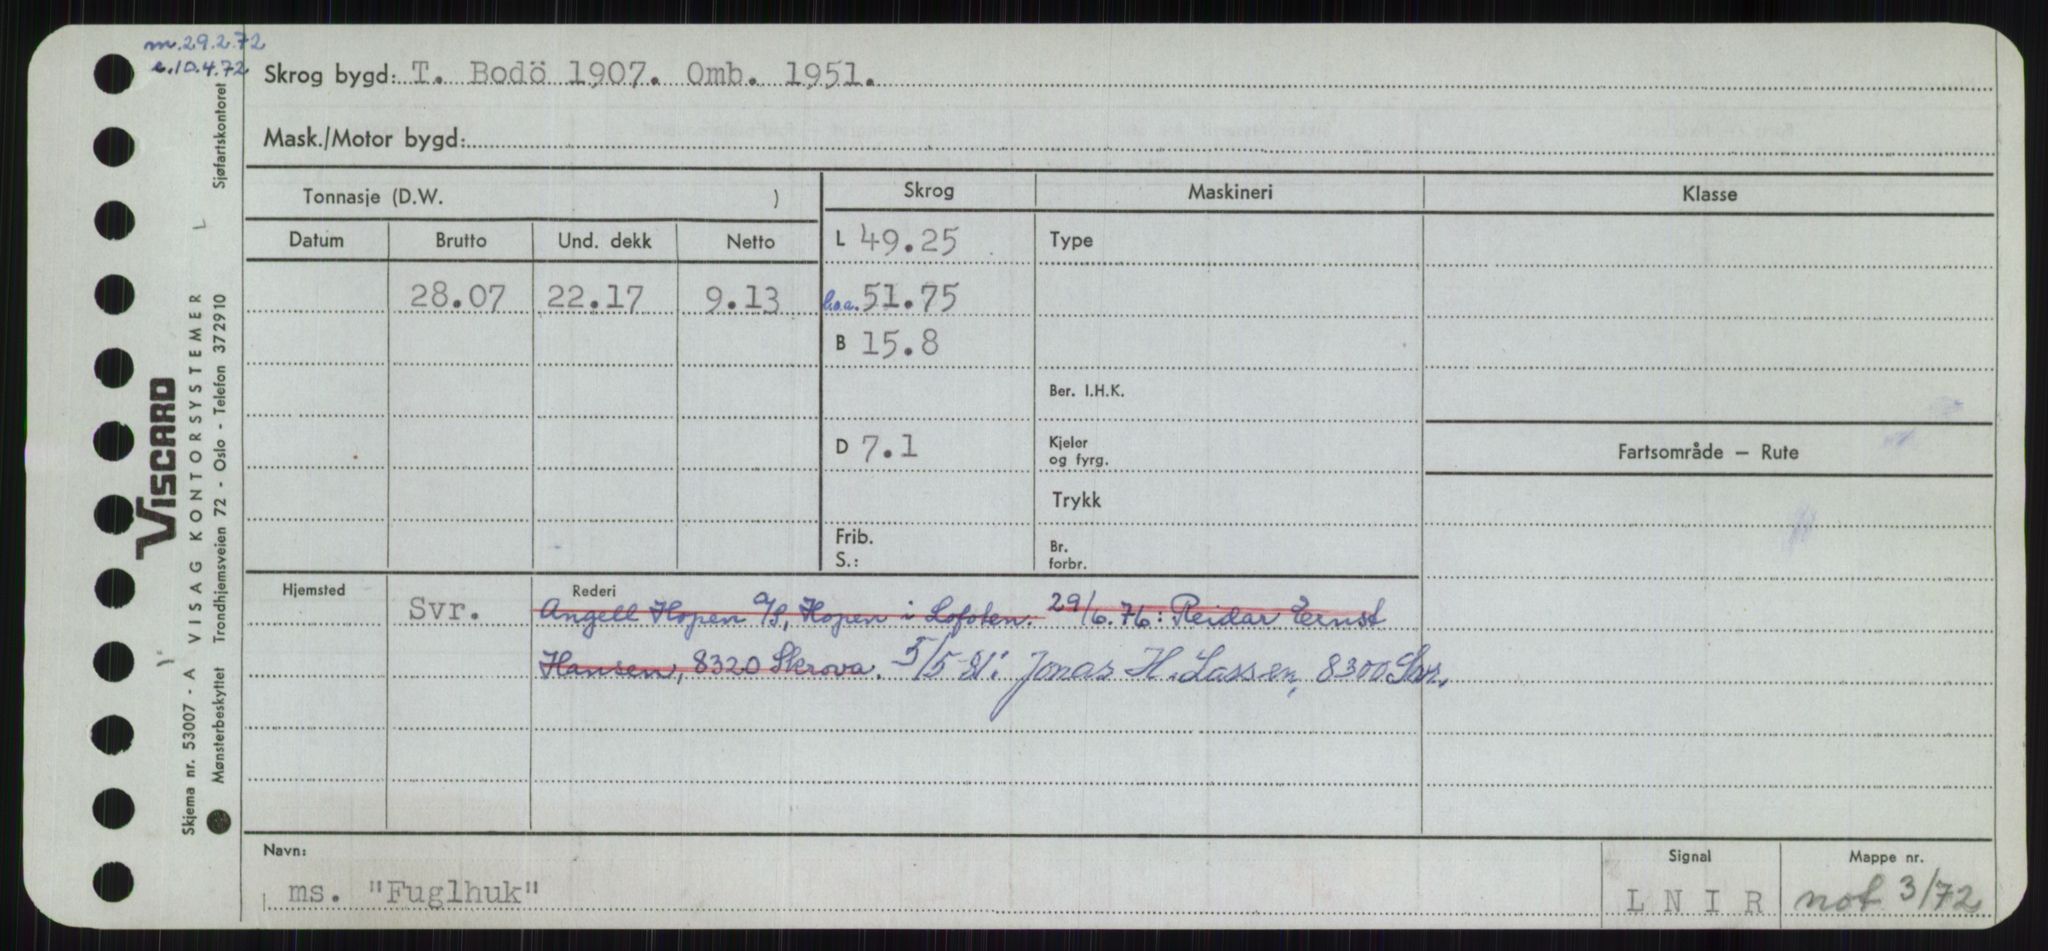 m.29.2.72
e.10.4.72
Skrog bygd: T. Bodö 1907. Omb. 1951.
Mask./Motor bygd:
Tonnasje (D.W. )
Skrog
Maskineri
Klasse
Datum
Brutto
Und. dekk
Netto
L 49.25
Type
28.07
22.17
9.13
l.o.a. 51.75
B 15.8
Ber. I.H.K.
D 7.1
Kjeler
og fyrg.
Fartsområde — Rute
Trykk
Frib.
S.:
Br.
forbr.
Hjemsted
Svr.
Rederi
Angell Hopen A/S, Hopen i Lofoten. 29/6.76: Reidar Ernst
Hansen, 8320 Skrova. 5/5-81: Jonas H. Lassen, 8300 Svr.
Navn:
ms. "Fuglhuk"
Signal
L N I R
Mappe nr.
not 3/72
Viscard
VISAG KONTORSYSTEMER
Skjema nr. 53007 - A
Mønsterbeskyttet Trondhjemsveien 72 - Oslo - Telefon 372910
Sjøfartskontoret